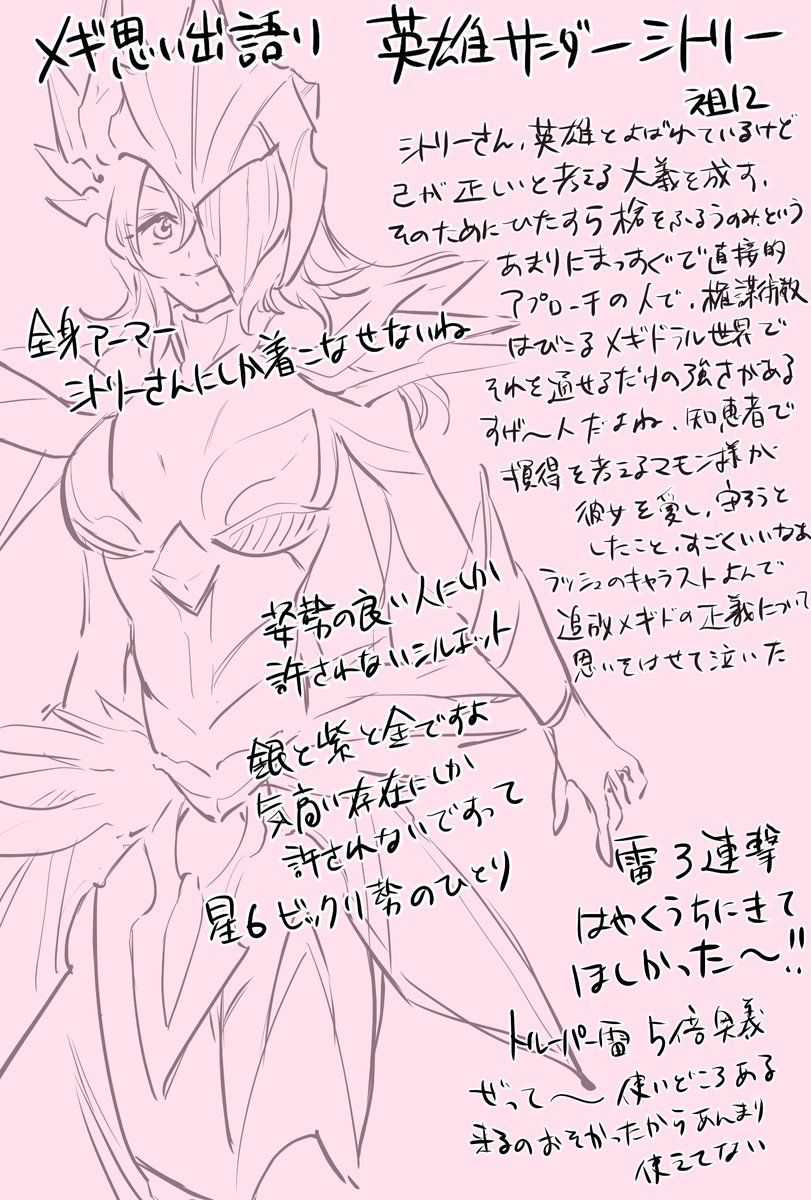 メギ思い出語り　英雄サンダーシトリー
祖12
シトリーさん、英雄とよばれているけど
己が正しいと考える大義を成す、
そのためにひたすら槍をふるうのみ、という
あまりにまっすぐで直接的
アプローチの人で、権謀術数
はびこるメギドラル世界で
それを通せるだけの強さがある
すげ〜人だよね、知恵者で
損得を考えるマモン様が
彼女を愛し、守ろうと
したこと、すごくいいなあ
ラッシュのキャラストよんで
追放メギドの正義について
思いをはせて泣いた
全身アーマー
シトリーさんにしか着こなせないね
姿勢の良い人にしか
許されないシルエット
銀と紫と金ですよ
気高い存在にしか
許されないですって
星6ビックリ勢のひとり
雷3連撃
はやくうちにきて
ほしかった〜!!
トルーパー雷5倍奥義
ぜって〜使いどころある
来るのおそかったからあんまり
使えてない